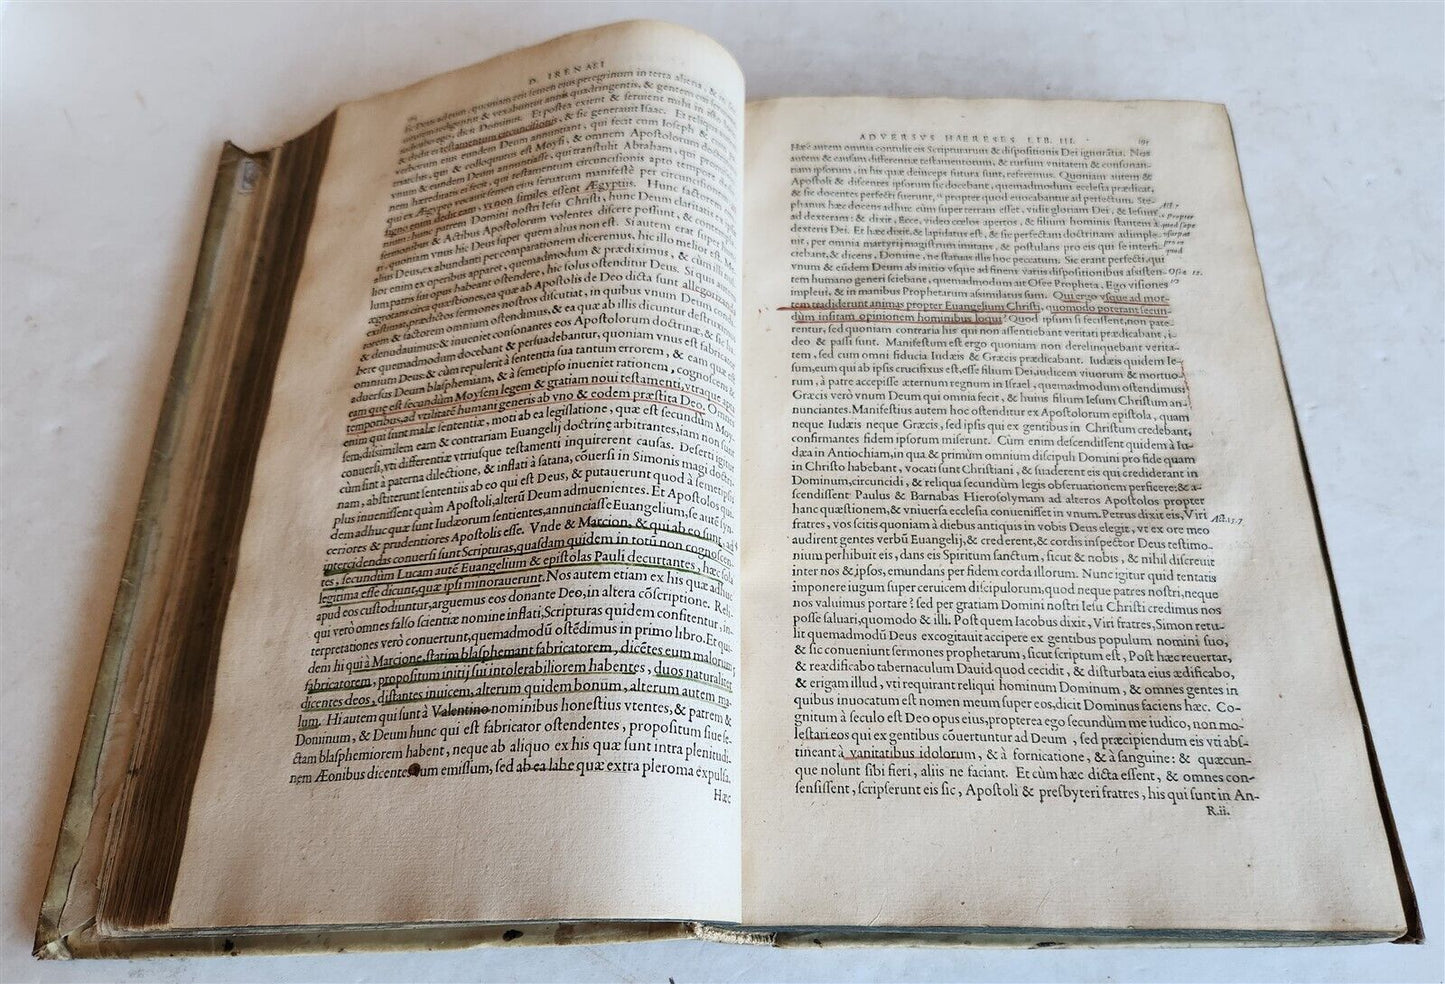 D. IRENAEI
sic Deus ad eum, quoniam erit semen eius peregrinum in terra aliena, &
& dedit ei testamentum circuncisionis, & sic generauit Isaac. Et reliqua
qui ex Ægypto vocauit
signo eum dedicans, vt non similes essent Ægyptiis. Hunc
tuum: hunc patrem Domini nostri Iesu Christi, hunc Deum claritatis
sermonibus & Actibus Apostolorum volentes discere possunt, &
quoniam vnus hic Deus super quem alius non est. Si autem erat super
alius Deus, ex abundanti per comparationem diceremus, hic illo melior est. Me-
lior enim ex operibus apparet, quemadmodum & prædiximus, & cùm illi
lum patris sui opus habeant ostendere, hic solus ostenditur Deus. Si quis autem
ægrotans circa quæstiones, ea quæ ab Apostolis de Deo dicta sunt allegorizanda
existimat, prædictos sermones nostros discutiat, in quibus vnum Deum condi-
torem & factorem omnium ostendimus, & ea quæ ab illis dicuntur destruximus
& denudauimus: & inueniet consonantes eos Apostolorum doctrinæ, & sic ha-
bere quemadmodum docebant & persuadebantur, quoniam vnus est fabricator
omnium Deus: & cùm repulerit à sententia sua tantum errorem, & eam quæ est
aduersus Deum blasphemiam, & à semetipso inueniet rationem, cognoscens &
eam quæ est secundùm Moysem legem & gratiam noui testamenti, vtraque apta
temporibus, ad vtilitatẽ humani generis ab vno & eodem præstita Deo. Omnes
enim qui sunt malæ sententiæ, moti ab ea legislatione, quæ est secundùm Moy-
sem, dissimilem eam & contrariam Euangelij doctrinę arbitrantes, iam non sunt
conuersi, vti differentiæ vtriusque testamenti inquirerent causas. Deserti igitur
cùm sint à paterna dilectione, & inflati à satana, cõuersi in Simonis magi doctri-
nam, abstiterunt sententiis ab eo qui est Deus, & putauerunt quod à semetipsis
plus inuenissent quàm Apostoli, alterũ Deum adinuenientes. Et Apostolos qui-
dem adhuc quæ sunt Iudæorum sentientes, annunciasse Euangelium, se autẽ syn-
ceriores & prudentiores Apostolis esse. Vnde & Marcion, & qui ab eo sunt, ad
intercidendas conuersi sunt Scripturas, quasdam quidem in totũ non cognoscen-
tes, secundùm Lucam autẽ Euangelium & epistolas Pauli decurtantes, hæc sola
legitima esse dicunt, quæ ipsi minorauerunt. Nos autem etiam ex his quæ adhuc
apud eos custodiuntur, arguemus eos donante Deo, in altera cõscriptione. Reli-
qui verò omnes falso scientiæ nomine inflati, Scripturas quidem confitentur, in-
terpretationes verò conuertunt, quemadmodũ ostẽdimus in primo libro. Et qui-
dem hi qui à Marcione, statim blasphemant fabricatorem, dicẽtes eum malorum
fabricatorem, propositum initij sui intolerabiliorem habentes, duos naturaliter
dicentes deos, distantes inuicem, alterum quidem bonum, alterum autem ma-
lum. Hi autem qui sunt à Valentino nominibus honestius vtentes, & patrem &
Dominum, & Deum hunc qui est fabricator ostendentes, propositum siue se-
ctam blasphemiorem habent, neque ab aliquo ex his quæ sunt intra plenitudi-
nem Æonibus dicentes eum emissum, sed ab ea labe quæ extra pleroma expulsa.
Hæc
ADVERSVS HAERESES LIB. III. 191
Hæc autem omnia contulit eis Scripturarum & dispositionis Dei ignorãtia. Nos
autem & causam differentiæ testamentorum, & rursum vnitatem & consonan-
tiam ipsorum, in his quæ deinceps futura sunt, referemus. Quoniam autem &
Apostoli & discentes ipsorum sic docebant, quemadmodum ecclesia prædicat,
& sic docentes perfecti fuerunt, propter quod euocabantur ad perfectum. Ste-
phanus hæc docens adhuc cùm super terram esset, vidit gloriam Dei, & Iesum
ad dexteram: & dixit, Ecce, video cœlos apertos, & filium hominis stantem à
dexteris Dei. Et hæc dixit & lapidatus est, & sic perfectam doctrinam adimple-
uit, per omnia martyrij magistrum imitans, & postulans pro eis qui se interfi-
ciebant, & dicens, Domine, ne statuas illis hoc peccatum. Sic erant perfecti, qui
vnum & eũdem Deum ab initio vsque ad finem variis dispositionibus assisten-
tem humano generi sciebant, quemadmodum ait Osee Propheta, Ego visiones
impleui, & in manibus Prophetarum assimilatus sum. Qui ergo vsque ad mor-
tem tradiderunt animas propter Euangelium Christi, quomodo poterant secun-
dùm insitam opinionem hominibus loqui? Quod ipsum si fecissent, non pate-
rentur, sed quoniam contraria his qui non assentiebant veritati prædicabant, i-
deo & passi sunt. Manifestum est ergo quoniam non derelinquebant verita-
tem, sed cum omni fiducia Iudæis & Græcis prædicabant. Iudæis quidem Ie-
sum, eum qui ab ipsis crucifixus est, esse filium Dei, iudicem viuorum & mortuo-
rum, à patre accepisse æternum regnum in Israel, quemadmodum ostendimus:
Græcis verò vnum Deum qui omnia fecit, & huius filium Iesum Christum an-
nunciantes. Manifestius autem hoc ostenditur ex Apostolorum epistola, quam
neque Iudæis neque Græcis, sed ipsis qui ex gentibus in Christum credebant,
confirmantes fidem ipsorum miserunt. Cùm enim descendissent quidem à Iu-
dæa in Antiochiam, in qua & primùm omnium discipuli Domini pro fide quam
in Christo habebant, vocati sunt Christiani, & suaderent eis qui crediderant in
Dominum, circuncidi, & reliqua secundùm legis obseruationem perficere: & a-
scendissent Paulus & Barnabas Hierosolymam ad alteros Apostolos propter
hanc quæstionem, & vniuersa ecclesia conuenisset in vnum. Petrus dixit eis, Viri
fratres, vos scitis quoniam à diebus antiquis in vobis Deus elegit, vt ex ore meo
audirent gentes verbũ Euangelij, & crederent, & cordis inspector Deus testimo-
nium perhibuit eis, dans eis Spiritum sanctum, sicut & nobis, & nihil discreuit
inter nos & ipsos, emundans per fidem corda illorum. Nunc igitur quid tentatis
imponere iugum super ceruicem discipulorum, quod neque patres nostri, neque
nos valuimus portare? sed per gratiam Domini nostri Iesu Christi credimus nos
posse saluari, quomodo & illi. Post quem Iacobus dixit, Viri fratres, Simon retu-
lit quemadmodũ Deus excogitauit accipere ex gentibus populum nomini suo,
& sic conueniunt sermones prophetarum, sicut scriptum est, Post hæc reuertar,
& reædificabo tabernaculum Dauid quod cecidit, & disturbata eius ædificabo,
& erigam illud, vti requirant reliqui hominum Dominum, & omnes gentes in
quibus inuocatum est nomen meum super eos, dicit Dominus faciens hæc. Co-
gnitum à seculo est Deo opus eius, propterea ego secundùm me iudico, non mo-
lestari eos qui ex gentibus cõuertuntur ad Deum, sed præcipiendum eis vti abs-
tineant à vanitatibus idolorum, & à fornicatione, & à sanguine: & quæcun-
que nolunt sibi fieri, aliis ne faciant. Et cùm hæc dicta essent, & omnes con-
sensissent, scripserunt eis sic, Apostoli & presbyteri fratres, his qui sunt in An-
R.ii.
Act. 7
Propter
quod sæpe
Osee 12.
Act. 15. 7